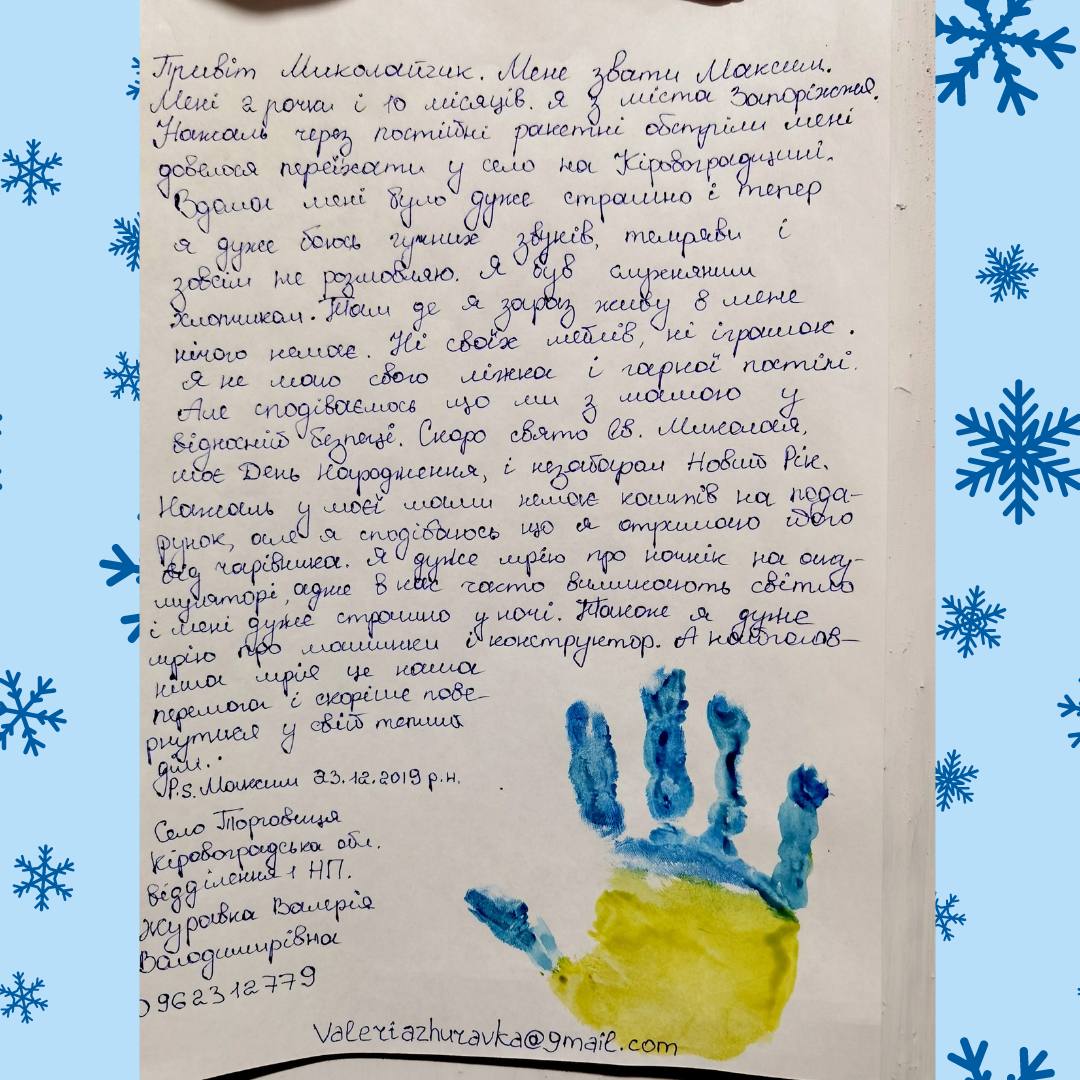 Привіт Миколайчик. Мене звати Максим.
Мені 2 рочки і 10 місяців. Я з міста Запоріжжя.
Нажаль через постійні ракетні обстріли мені
довелося переїхати у село на Кіровоградщині.
Вдома мені було дуже страшно і тепер
я дуже боюсь гучних звуків, темряви і
зовсім не розмовляю. Я був слухняним
хлопчиком. Там де я зараз живу в мене
нічого немає. Ні своїх меблів, ні іграшок.
Я не маю свого ліжка і гарної постілі.
Але сподіваємось що ми з мамою у
відносній безпеці. Скоро свято Св. Миколая,
моє День Народження, і незабаром Новий Рік.
Нажаль у моєї мами немає коштів на пода-
рунок, але я сподіваюсь що я отримаю його
від чарівника. Я дуже мрію про ночнік на аку-
муляторі, адже в нас часто вимикають світло
і мені дуже страшно у ночі. Також я дуже
мрію про машинки і конструктор. А найголов-
ніша мрія це наша
перемога і скоріше пове-
рнутися у свій теплий
дім..
P.s. Максим 23.12.2019 р.н.
Село Торговиця
Кіровоградська обл.
відділення 1 НП.
Журавка Валерія
Володимирівна
0962312779
Valeriazhuravka@gmail.com